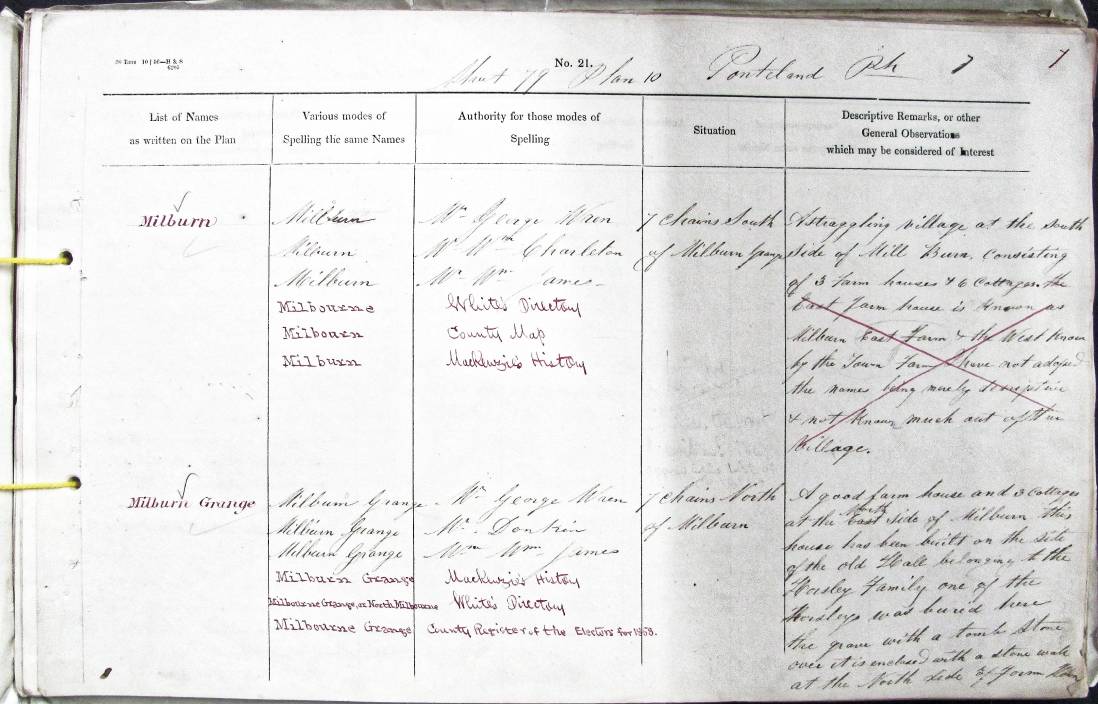 No. 21.
Sheet 79 Plan 10 Ponteland Ph 7 7
List of Names
as written on the Plan
Various modes of
Spelling the same Names
Authority for those modes of
Spelling
Situation
Descriptive Remarks, or other
General Observations
which may be considered of Interest
Milburn
Milburn Mr. George Wren
Milburn Mr. Wm. Charleton
Milburn Mr. Wm. James
Milbourne White's Directory
Milbourn County Map
Milburn Mackenzie's History
7 Chains South
of Milburn Grange
A straggling village at the South
side of Mill Burn. Consisting
of 3 Farm houses & 6 Cottages. the
East Farm house is Known as
Milburn East Farm & the West Known
by the Town Farm I have not adopted
the names being merely descriptive
& not Known much out of the
Village.
Milburn Grange
Milburn Grange Mr. George Wren
Milburn Grange Mr. Donkin
Milburn Grange Wm James
Milburn Grange Mackenzie's History
Milbourne Grange, or North Milbourne White's Directory
Milbourne Grange County Register of the Electors for
7 Chains North
of Milburn
A good farm house and 3 Cottages
at the East North side of Milburn this
house has been built on the side
of the old Hall belonging to the
Horsley Family one of the
Horsleys was buried here
the grave with a tomb Stone
over it is enclosed with a stone wall
at the North side of Farm